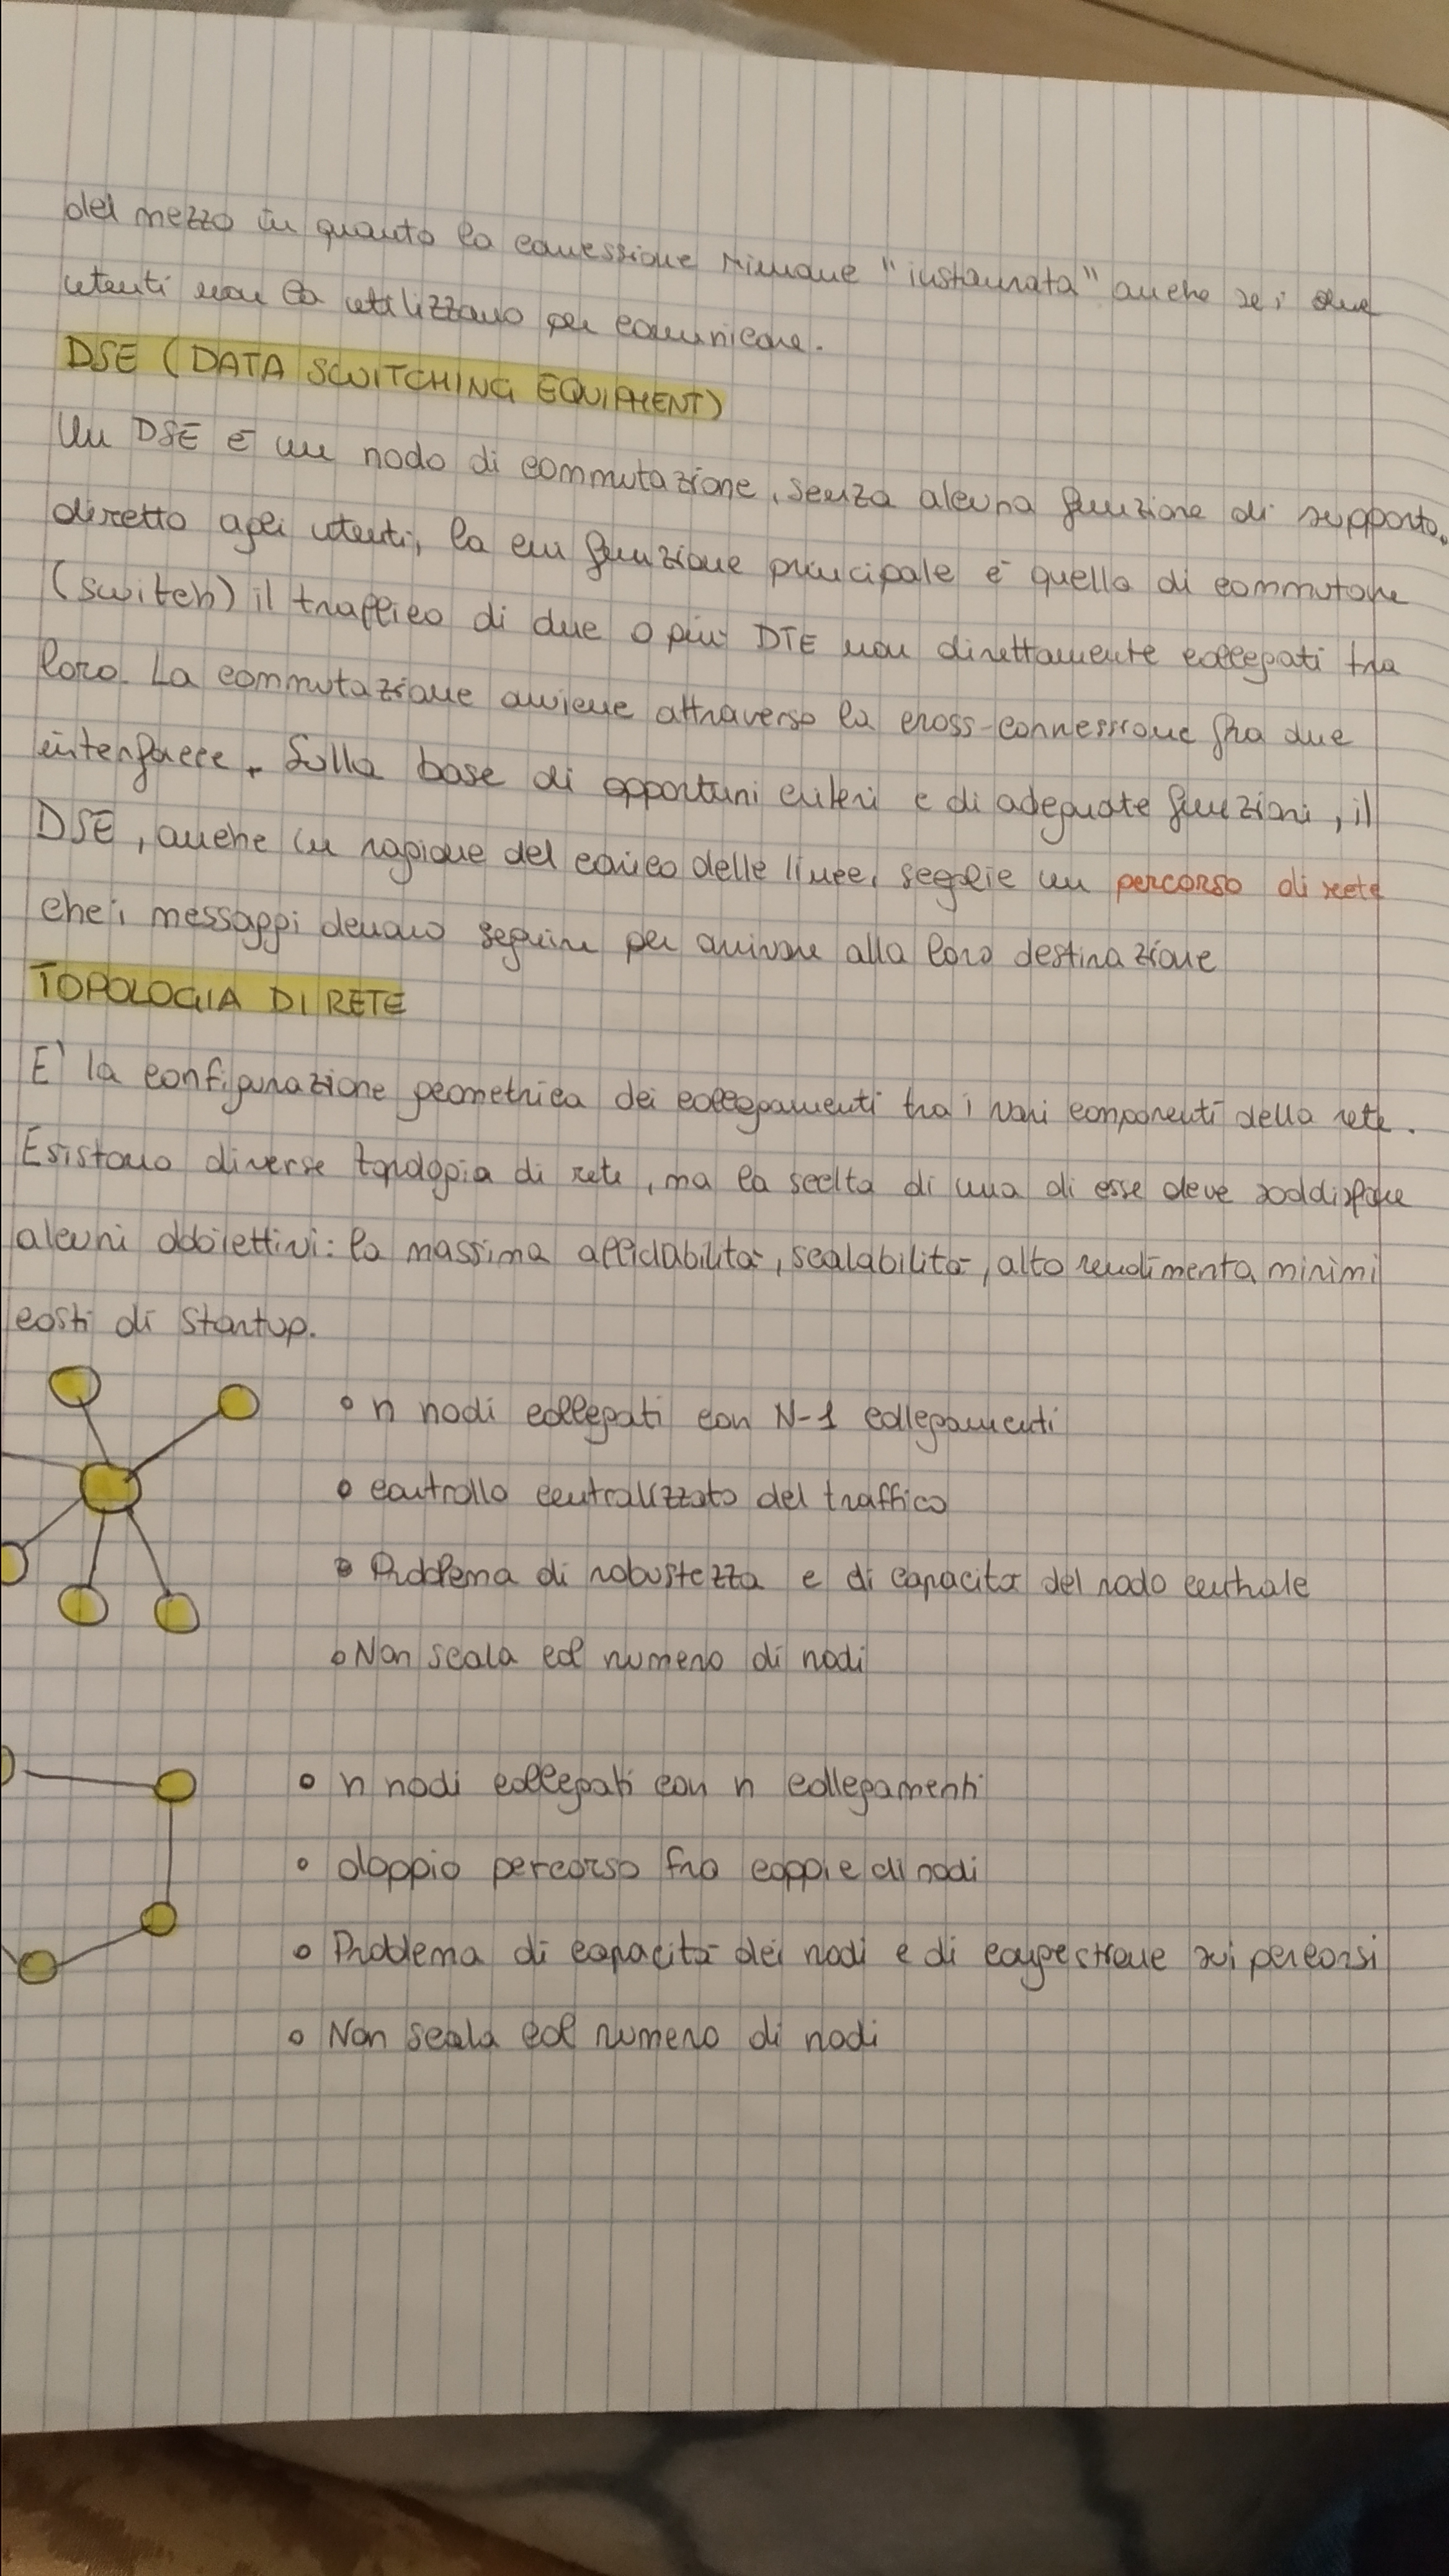 del mezzo in quanto la connessione rimane "instaurata" anche se i due
utenti non la utilizzano per comunicare.
DSE (DATA SWITCHING EQUIPMENT)
Un DSE è un nodo di commutazione, senza alcuna funzione di supporto
diretto agli utenti, la cui funzione principale è quella di commutare
(switch) il traffico di due o più DTE non direttamente collegati tra
loro. La commutazione avviene attraverso la cross-connessione fra due
interfacce. Sulla base di opportuni criteri e di adeguate funzioni, il
DSE, anche in ragione del carico delle linee, seglie un percorso di rete
che i messaggi devono seguire per arrivare alla loro destinazione
TOPOLOGIA DI RETE
E' la configurazione geometrica dei collegamenti tra i vari componenti della rete.
Esistono diverse topologia di rete, ma la scelta di una di esse deve soddisfare
alcuni obbiettivi: la massima affidabilità, scalabilità, alto rendimento, minimi
costi di startup.
° n nodi collegati con N-1 collegamenti
° controllo centralizzato del traffico
° Problema di robustezza e di capacità del nodo centrale
° Non scala col numero di nodi
° n nodi collegati con n collegamenti
° doppio percorso fra coppie di nodi
° Problema di capacità dei nodi e di congestione sui percorsi
° Non scala col numero di nodi